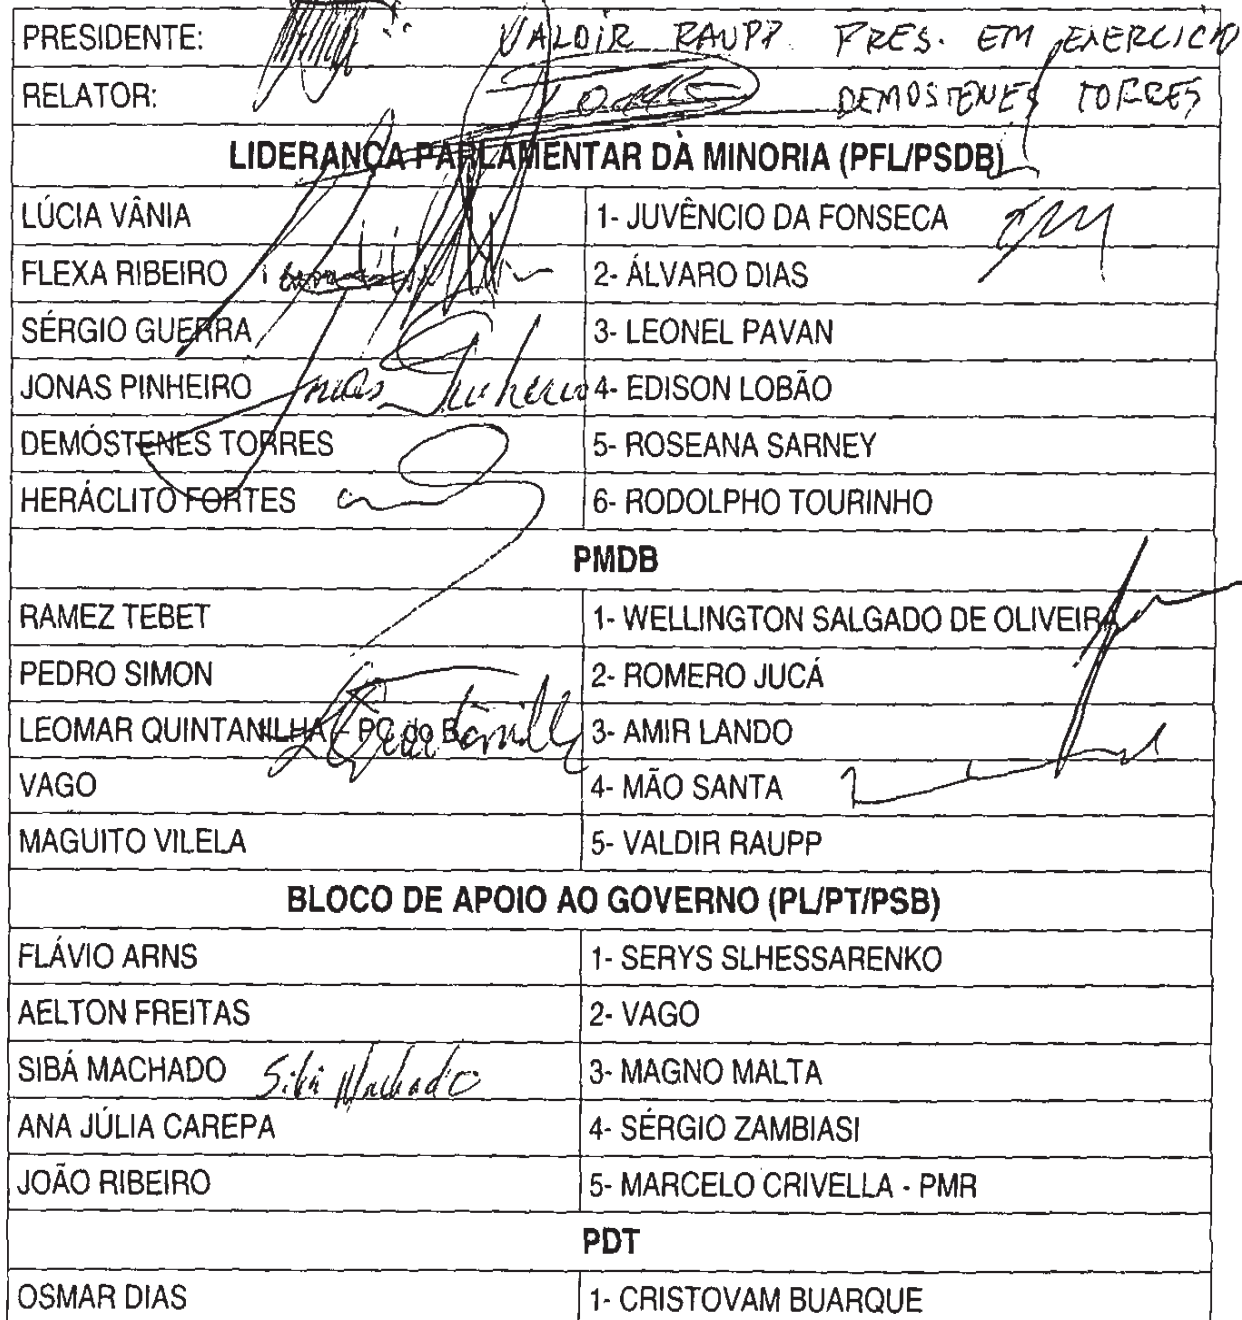 PRESIDENTE: VALDIR RAUPP PRES. EM EXERCICIO
RELATOR: DEMOSTENES TORRES
LIDERANÇA PARLAMENTAR DA MINORIA (PFL/PSDB)
LÚCIA VÂNIA 1- JUVÊNCIO DA FONSECA
FLEXA RIBEIRO 2- ÁLVARO DIAS
SÉRGIO GUERRA 3- LEONEL PAVAN
JONAS PINHEIRO Jonas Pinheiro 4- EDISON LOBÃO
DEMÓSTENES TORRES 5- ROSEANA SARNEY
HERÁCLITO FORTES 6- RODOLPHO TOURINHO
PMDB
RAMEZ TEBET 1- WELLINGTON SALGADO DE OLIVEIRA
PEDRO SIMON 2- ROMERO JUCÁ
LEOMAR QUINTANILHA - PC do B 3- AMIR LANDO
VAGO 4- MÃO SANTA
MAGUITO VILELA 5- VALDIR RAUPP
BLOCO DE APOIO AO GOVERNO (PL/PT/PSB)
FLÁVIO ARNS 1- SERYS SLHESSARENKO
AELTON FREITAS 2- VAGO
SIBÁ MACHADO Sibá Machado 3- MAGNO MALTA
ANA JÚLIA CAREPA 4- SÉRGIO ZAMBIASI
JOÃO RIBEIRO 5- MARCELO CRIVELLA - PMR
PDT
OSMAR DIAS 1- CRISTOVAM BUARQUE